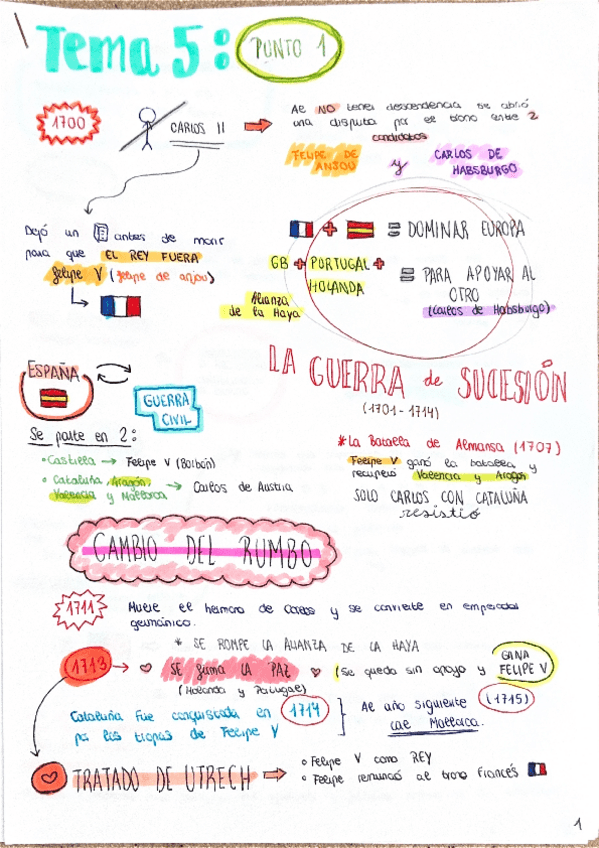 Tema 5: PUNTO 1
1700
CARLOS II
Al NO tener descendencia se abrió
una disputa por el trono entre 2
candidatos
FELIPE DE
ANJOU
y
CARLOS DE
HABSBURGO
Dejó un antes de morir
para que EL REY FUERA
Felipe V (Felipe de anjou)
+ = DOMINAR EUROPA
GB + PORTUGAL +
HOLANDA
= PARA APOYAR AL
OTRO
(Carlos de Habsburgo)
Alianza
de la Haya
LA GUERRA de SUCESIÓN
(1701-1714)
ESPAÑA
GUERRA
CIVIL
Se parte en 2:
• Castilla → Felipe V (Borbón)
• Cataluña, Aragón,
Valencia y Mallorca → Carlos de Austria
* La Batalla de Almansa (1707)
Felipe V ganó la batalla y
recuperó Valencia y Aragón
SOLO CARLOS CON CATALUÑA
resistió
CAMBIO DEL RUMBO
1711
Muere el hermano de Carlos y se convierte en emperador
germánico.
* SE ROMPE LA ALIANZA DE LA HAYA
1713 → ♡ SE firma LA PAZ ♡ (Se queda sin apoyo y GANA
FELIPE V
(Holanda y Portugal)
Cataluña fue conquistada en 1714
por las tropas de Felipe V
Al año siguiente (1715)
cae Mallorca.
TRATADO DE UTRECH
• Felipe V como REY
• Felipe renunció al trono francés
1